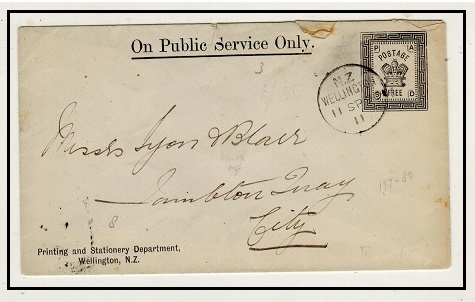 On Public Service Only.
3
P A
POSTAGE
FREE
I D
N.Z
WELLINGTON
11 SP
11
Messrs Lyon & Blair
Lambton Quay
City
8
Printing and Stationery Department,
Wellington, N.Z.